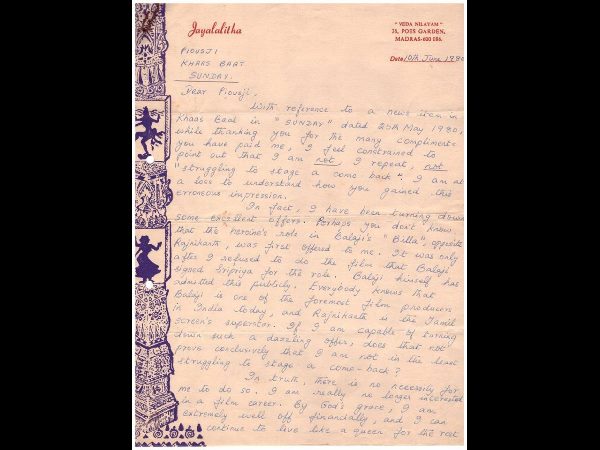 Jayalalitha
" VEDA NILAYAM "
36, POES GARDEN,
MADRAS-600 086.
Date 10th June 1980
PIOUSJI
KHAAS BAAT
SUNDAY.
Dear Piousji,
With reference to a news item in
Khaas Baat in "SUNDAY" dated 25th May 1980,
while thanking you for the many compliments
you have paid me, I feel constrained to
point out that I am not, I repeat, not
"struggling to stage a come-back". I am at
a loss to understand how you gained this
erroneous impression.
In fact, I have been turning down
some excellent offers. Perhaps you don't know
that the heroine's role in Balaji's "Billa", opposite
Rajnikanth, was first offered to me. It was only
after I refused to do the film that Balaji
signed Sripriya for the role. Balaji himself has
admitted this publicly. Everybody knows that
Balaji is one of the foremost film producers
in India today, and Rajnikanth is the Tamil
screen's superstar. If I am capable of turning
down such a dazzling offer, does that not
prove conclusively that I am not in the least
struggling to stage a come-back?
In truth, there is no necessity for
me to do so. I am really no longer interested
in a film career. By God's grace, I am
extremely well off financially, and I can
continue to live like a queen for the rest